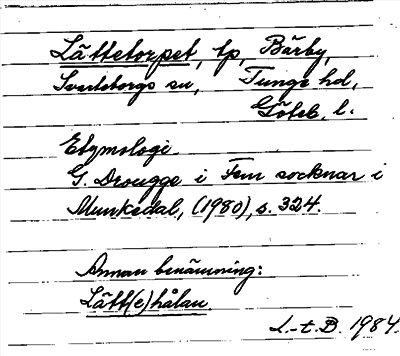 Lättetorpet, tp, Bärby,
Svarteborgs sn, Tunge hd,
Göteb. l.
Etymologi
G. Drougge i Fem socknar i
Munkedal, (1980), s. 324.
Annan benämning:
Lätt(e)hålan
L-t. B. 1984.